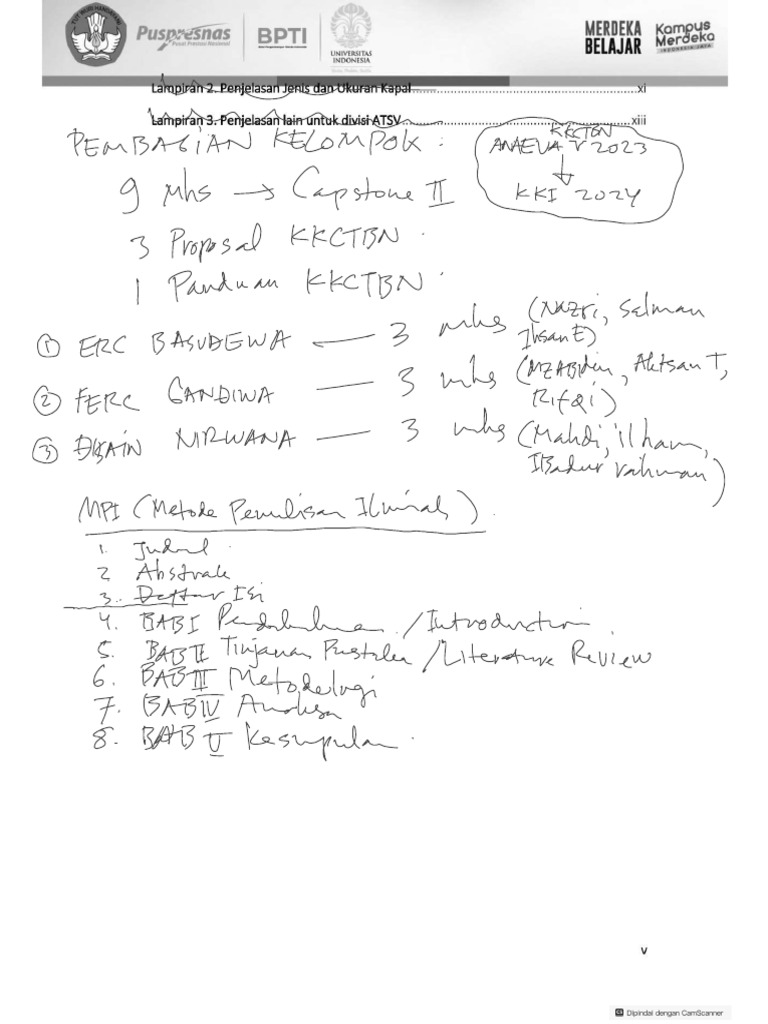 Puspresnas
Pusat Prestasi Nasional
BPTI
UNIVERSITAS
INDONESIA
MERDEKA
BELAJAR
Kampus
Merdeka
INDONESIA JAYA
Lampiran 2. Penjelasan Jenis dan Ukuran Kapal ... xi
Lampiran 3. Penjelasan lain untuk divisi ATSV ... xiii
PEMBAGIAN KELOMPOK :
KKCTBN
2023
KKI 2024
9 Mhs → Capstone II
3 Proposal KKCTBN
1 Panduan KKCTBN
① ERC BASUDEWA — 3 mhs (Nazri, Selman
Ihsan E)
② FERC GANDIWA — 3 mhs (MZABidin, Ahtsan T,
Rifqi)
③ DISAIN NIRWANA — 3 mhs (Mahdi, ilham,
IBadur rahman)
MPI (Metode Penulisan Ilmiah)
1. Judul
2 Abstrak
3. Daftar ISi
4. BAB I Pendahuluan / Introduction
5. BAB II Tinjauan Pustaka / Literature Review
6. BAB III Metodologi
7. BAB IV Analisa
8. BAB V Kesimpulan
v
CS Dipindai dengan CamScanner